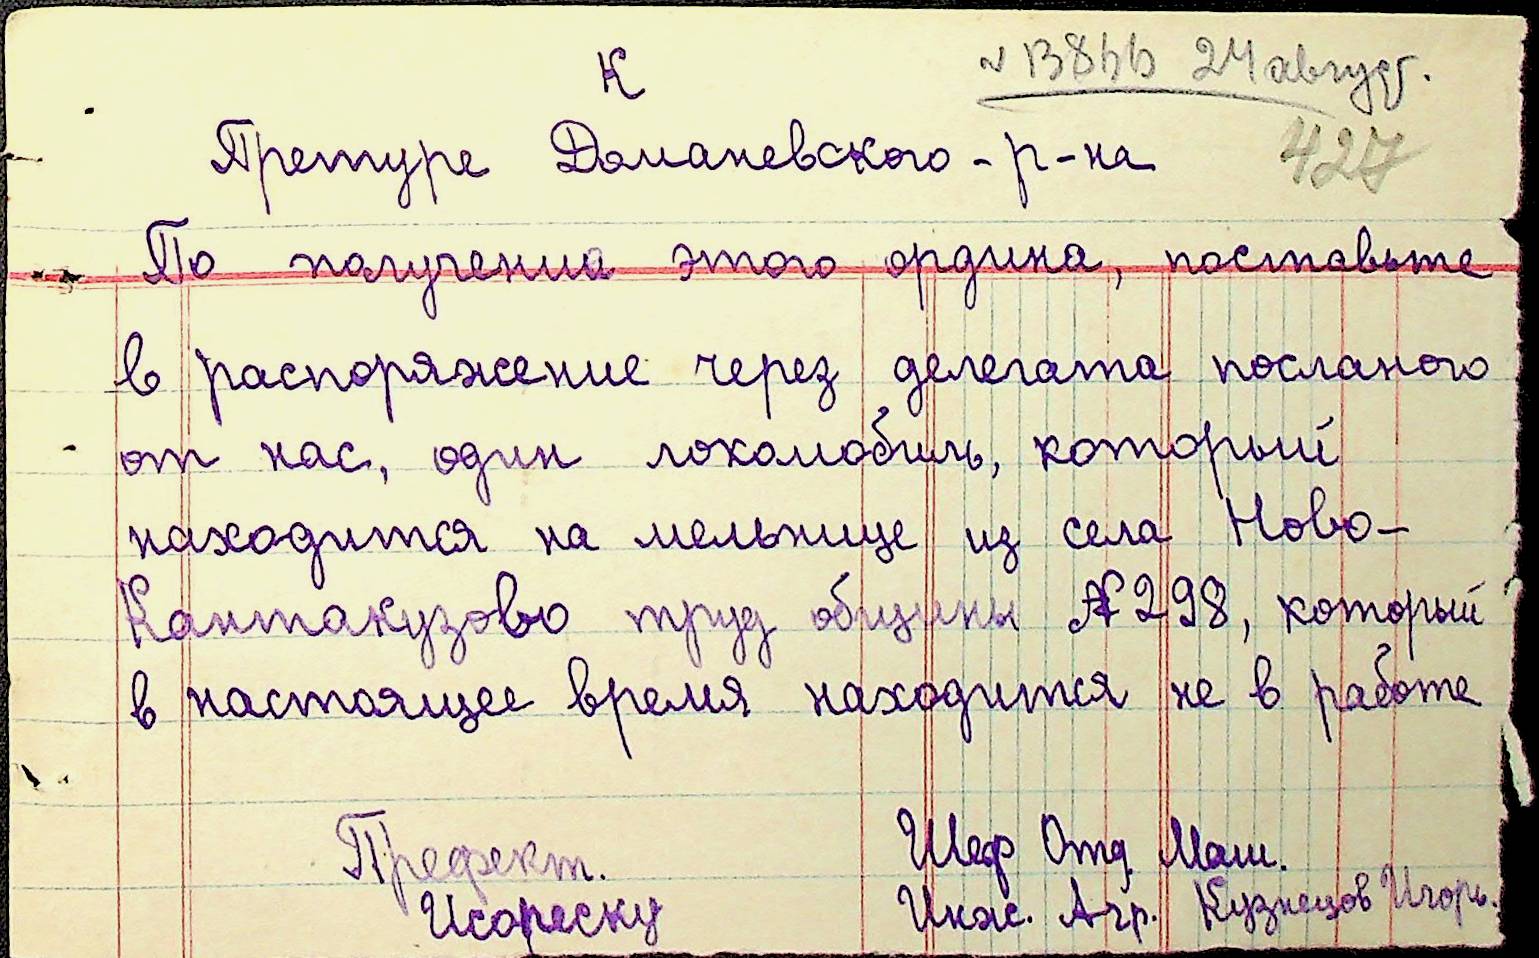 К
№ 13866 24 август.
427
Претуре Доманевского-р-на
По получении этого ордина, поставьте
в распоряжение через делегата посланого
от нас, один локомобиль, который
находится на мельнице из села Ново-
Кантакузово труд общины №298, который
в настоящее время находится не в работе
Префект. Шеф Отд Маш.
Исореску Инж. Агр. Кузнецов Игорь.